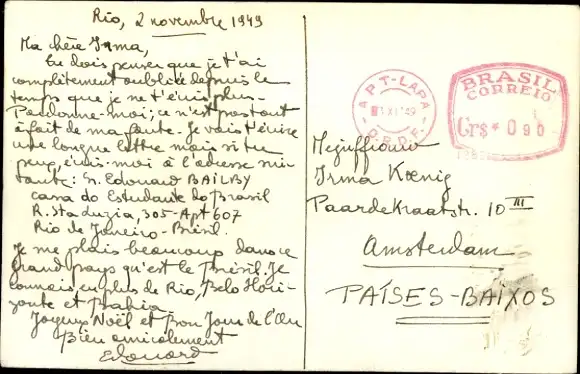 Rio, 2 novembre 1949
Ma chère Irma,
tu dois penser que je t'ai
complètement oubliée depuis le
temps que je ne t'écris plus.
Pardonne-moi; ce n'est pas tout
à fait de ma faute. Je vais t'écrire
une longue lettre mais si tu
peux, écris-moi à l'adresse sui-
tante: M. Edouard BAILBY
casa do Estudante do Brasil
R. Sta Luzia, 305-Apt 607
Rio de Janeiro-Brésil.
Je me plais beaucoup dans ce
grand pays qu'est le Brésil. Je
connais, en plus de Rio, Belo Hori-
zonte et Bahia.
Joyeux Noël et bon Jour de l'An
Bien amicalement
Edouard
APT-LAPA
XI 49
D.R.D.F.
BRASIL
CORREIO
Cr$ * 0 90
Mejuffrouw
Irma Kœnig
Paardekraalstr. 10 III
Amsterdam
PAÍSES-BAIXOS